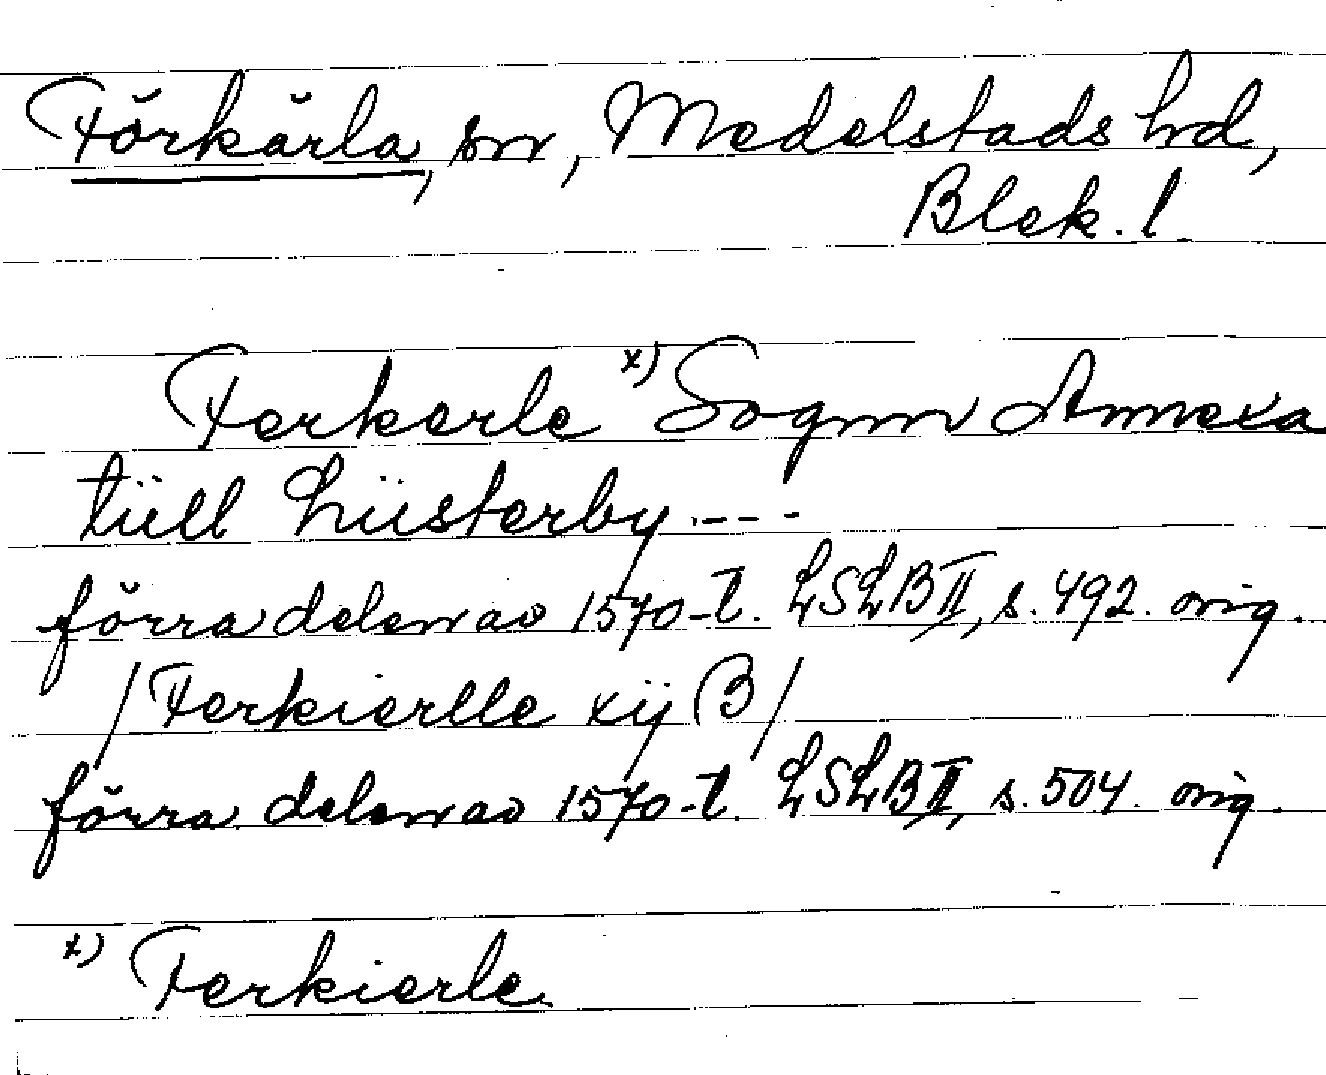 Förkärla, sn, Medelstads hd,
Blek. l.
Ferkerle x) Sognn Annexa
tüll Lüsterby ----
förra delen av 1570-t. LSLB II, s. 492. orig.
/Ferkierlle xij B/
förra delen av 1570-t. LSLB II, s. 504. orig.
x) Ferkierle